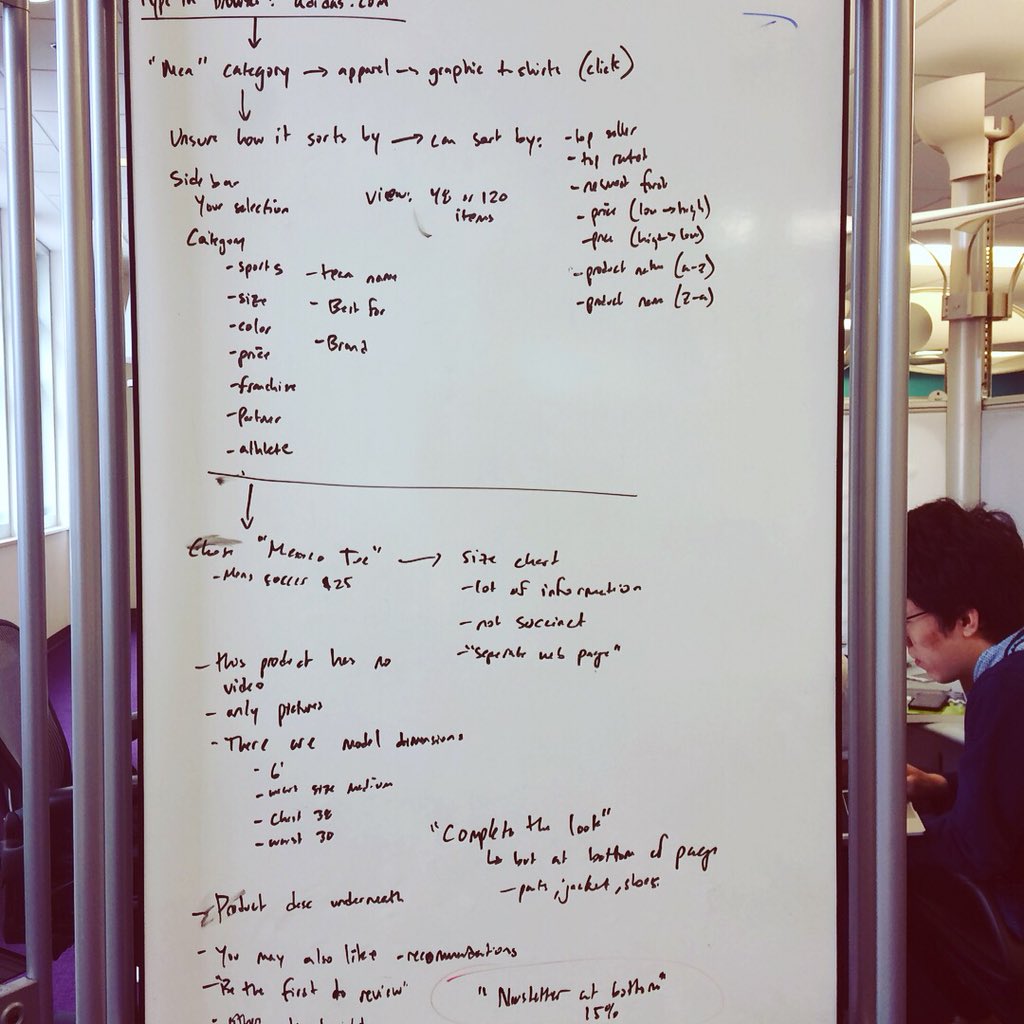 Type in browser: adidas.com
"Men" category → apparel → graphic t-shirts (click)
Unsure how it sorts by → can sort by:
- top seller
- top rated
- newest first
- price (low → high)
- price (high → low)
- product name (a-z)
- product name (z-a)
View: 48 or 120
items
Side bar
Your selection
Category
- sports
- size
- color
- price
- franchise
- Partner
- athlete
- team name
- Best for
- Brand
Chose "Mexico Tee" →
- Mens soccer $25
size chart
- lot of information
- not succinct
- "separate web page"
- this product has no
video
- only pictures
- There are model dimensions
- 6'
- wears size medium
- Chest 38
- waist 30
"Complete the look"
↳ but at bottom of page
- pants, jacket, shoes
- Product desc underneath
- You may also like - recommendations
- "Be the first to review"
"Newsletter at bottom"
15%